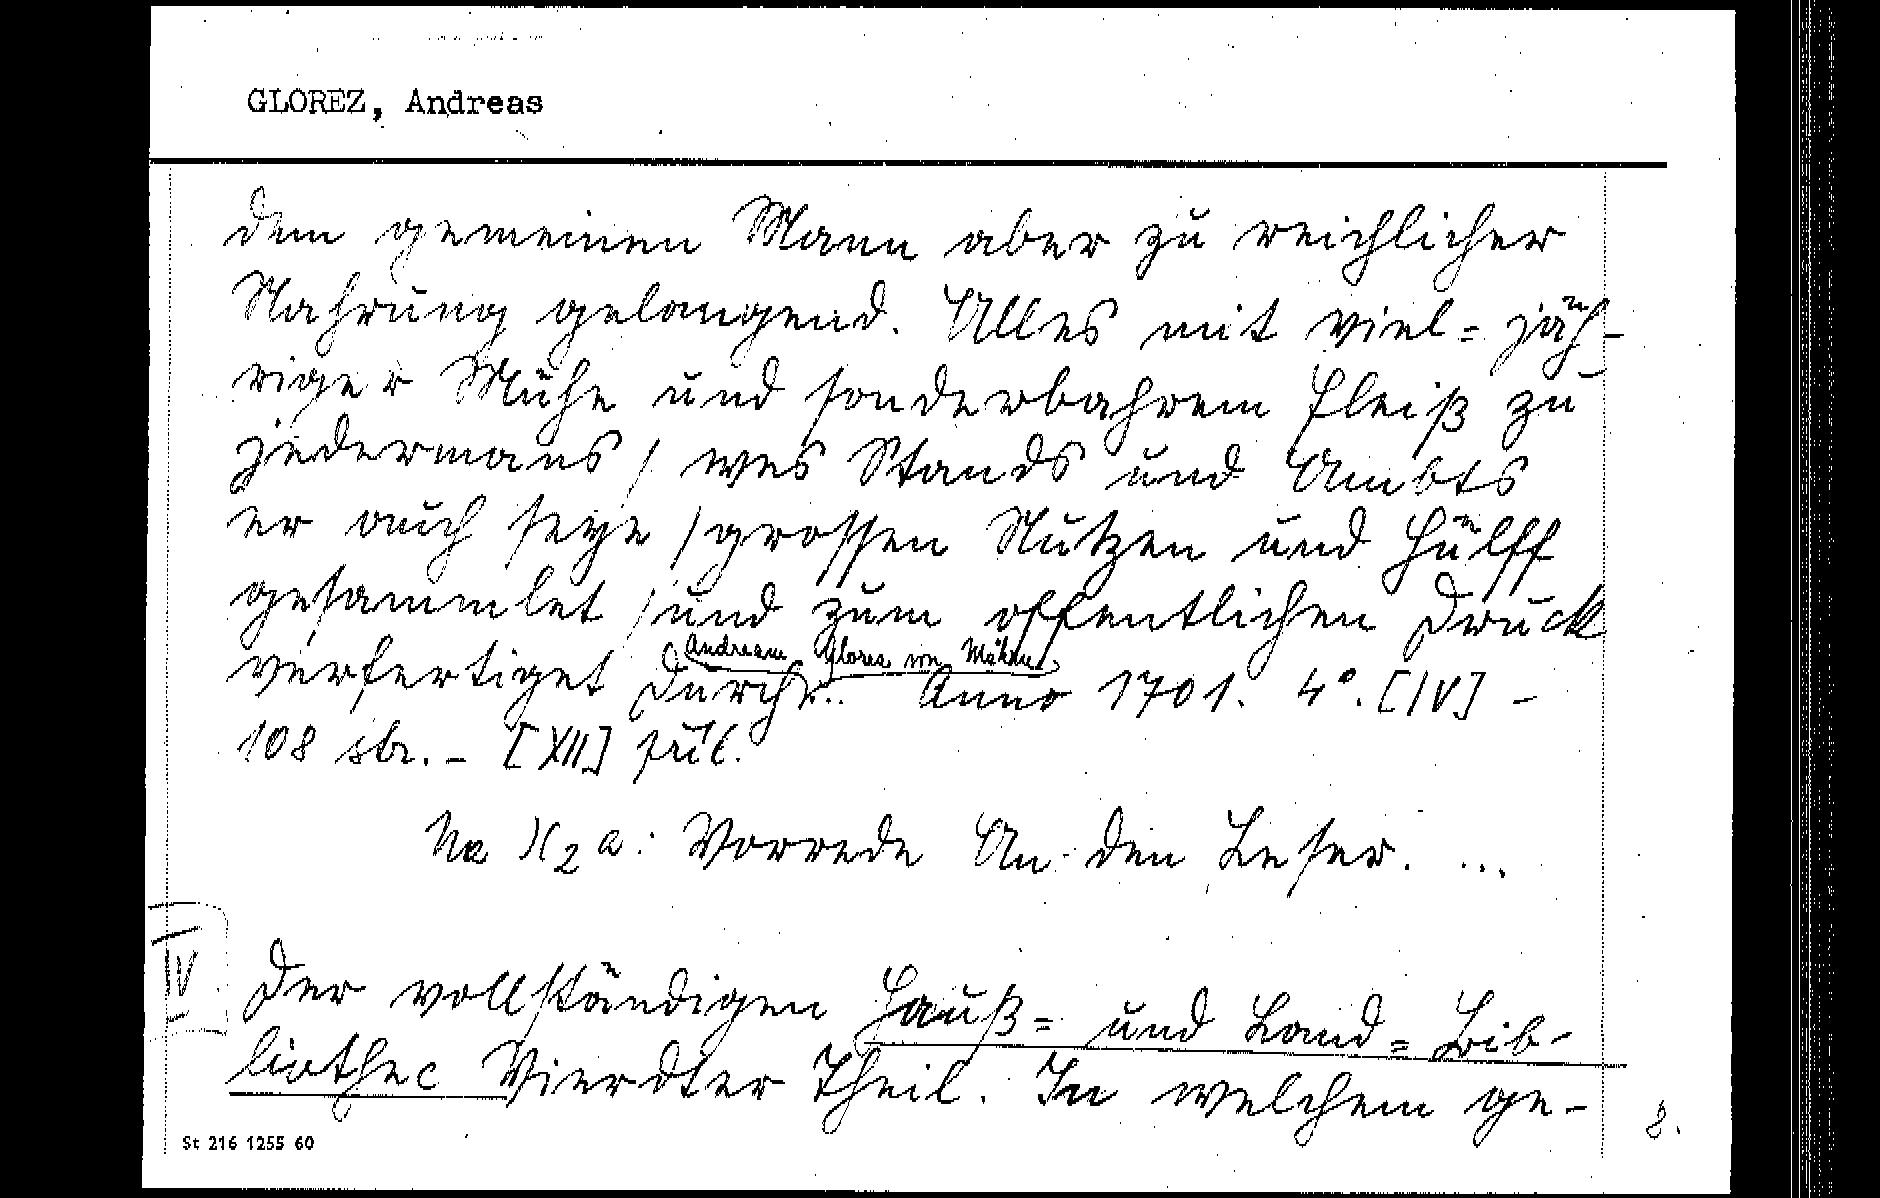 GLOREZ, Andreas
dem gemeinen Mann aber zu reichlicher
Nahrung gelangend. Alles mit viel= jäh-
riger Mühe und sonderbahrem Fleiß zu
jedermans / wes Stands und Ambts
er auch seye / grossen Nutzen und Hülff
gesammlet / und zum offentlichen Druck
Andream Glorez von Mähren
verfertiget Durch... Anno 1701. 4°. [IV] -
108 str. - [XII] fól.
Na X2a: Vorrede An den Leser. ...
IV
Der vollständigen Hauß= und Land= Bib-
liothec Vierdter Theil. In welchem ge-
8.
St 216 1255 60